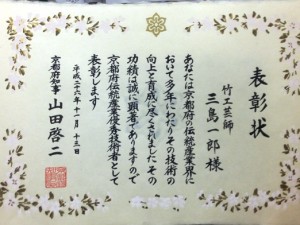 表彰状
竹工芸師
三島一郎様
あなたは京都府の伝統産業界に
おいて多年にわたりその技術の
向上と育成に尽くされました その
功績は誠に顕著でありますので
京都府伝統産業優秀技術者として
表彰します
平成二十六年十一月十三日
京都府知事 山田啓二